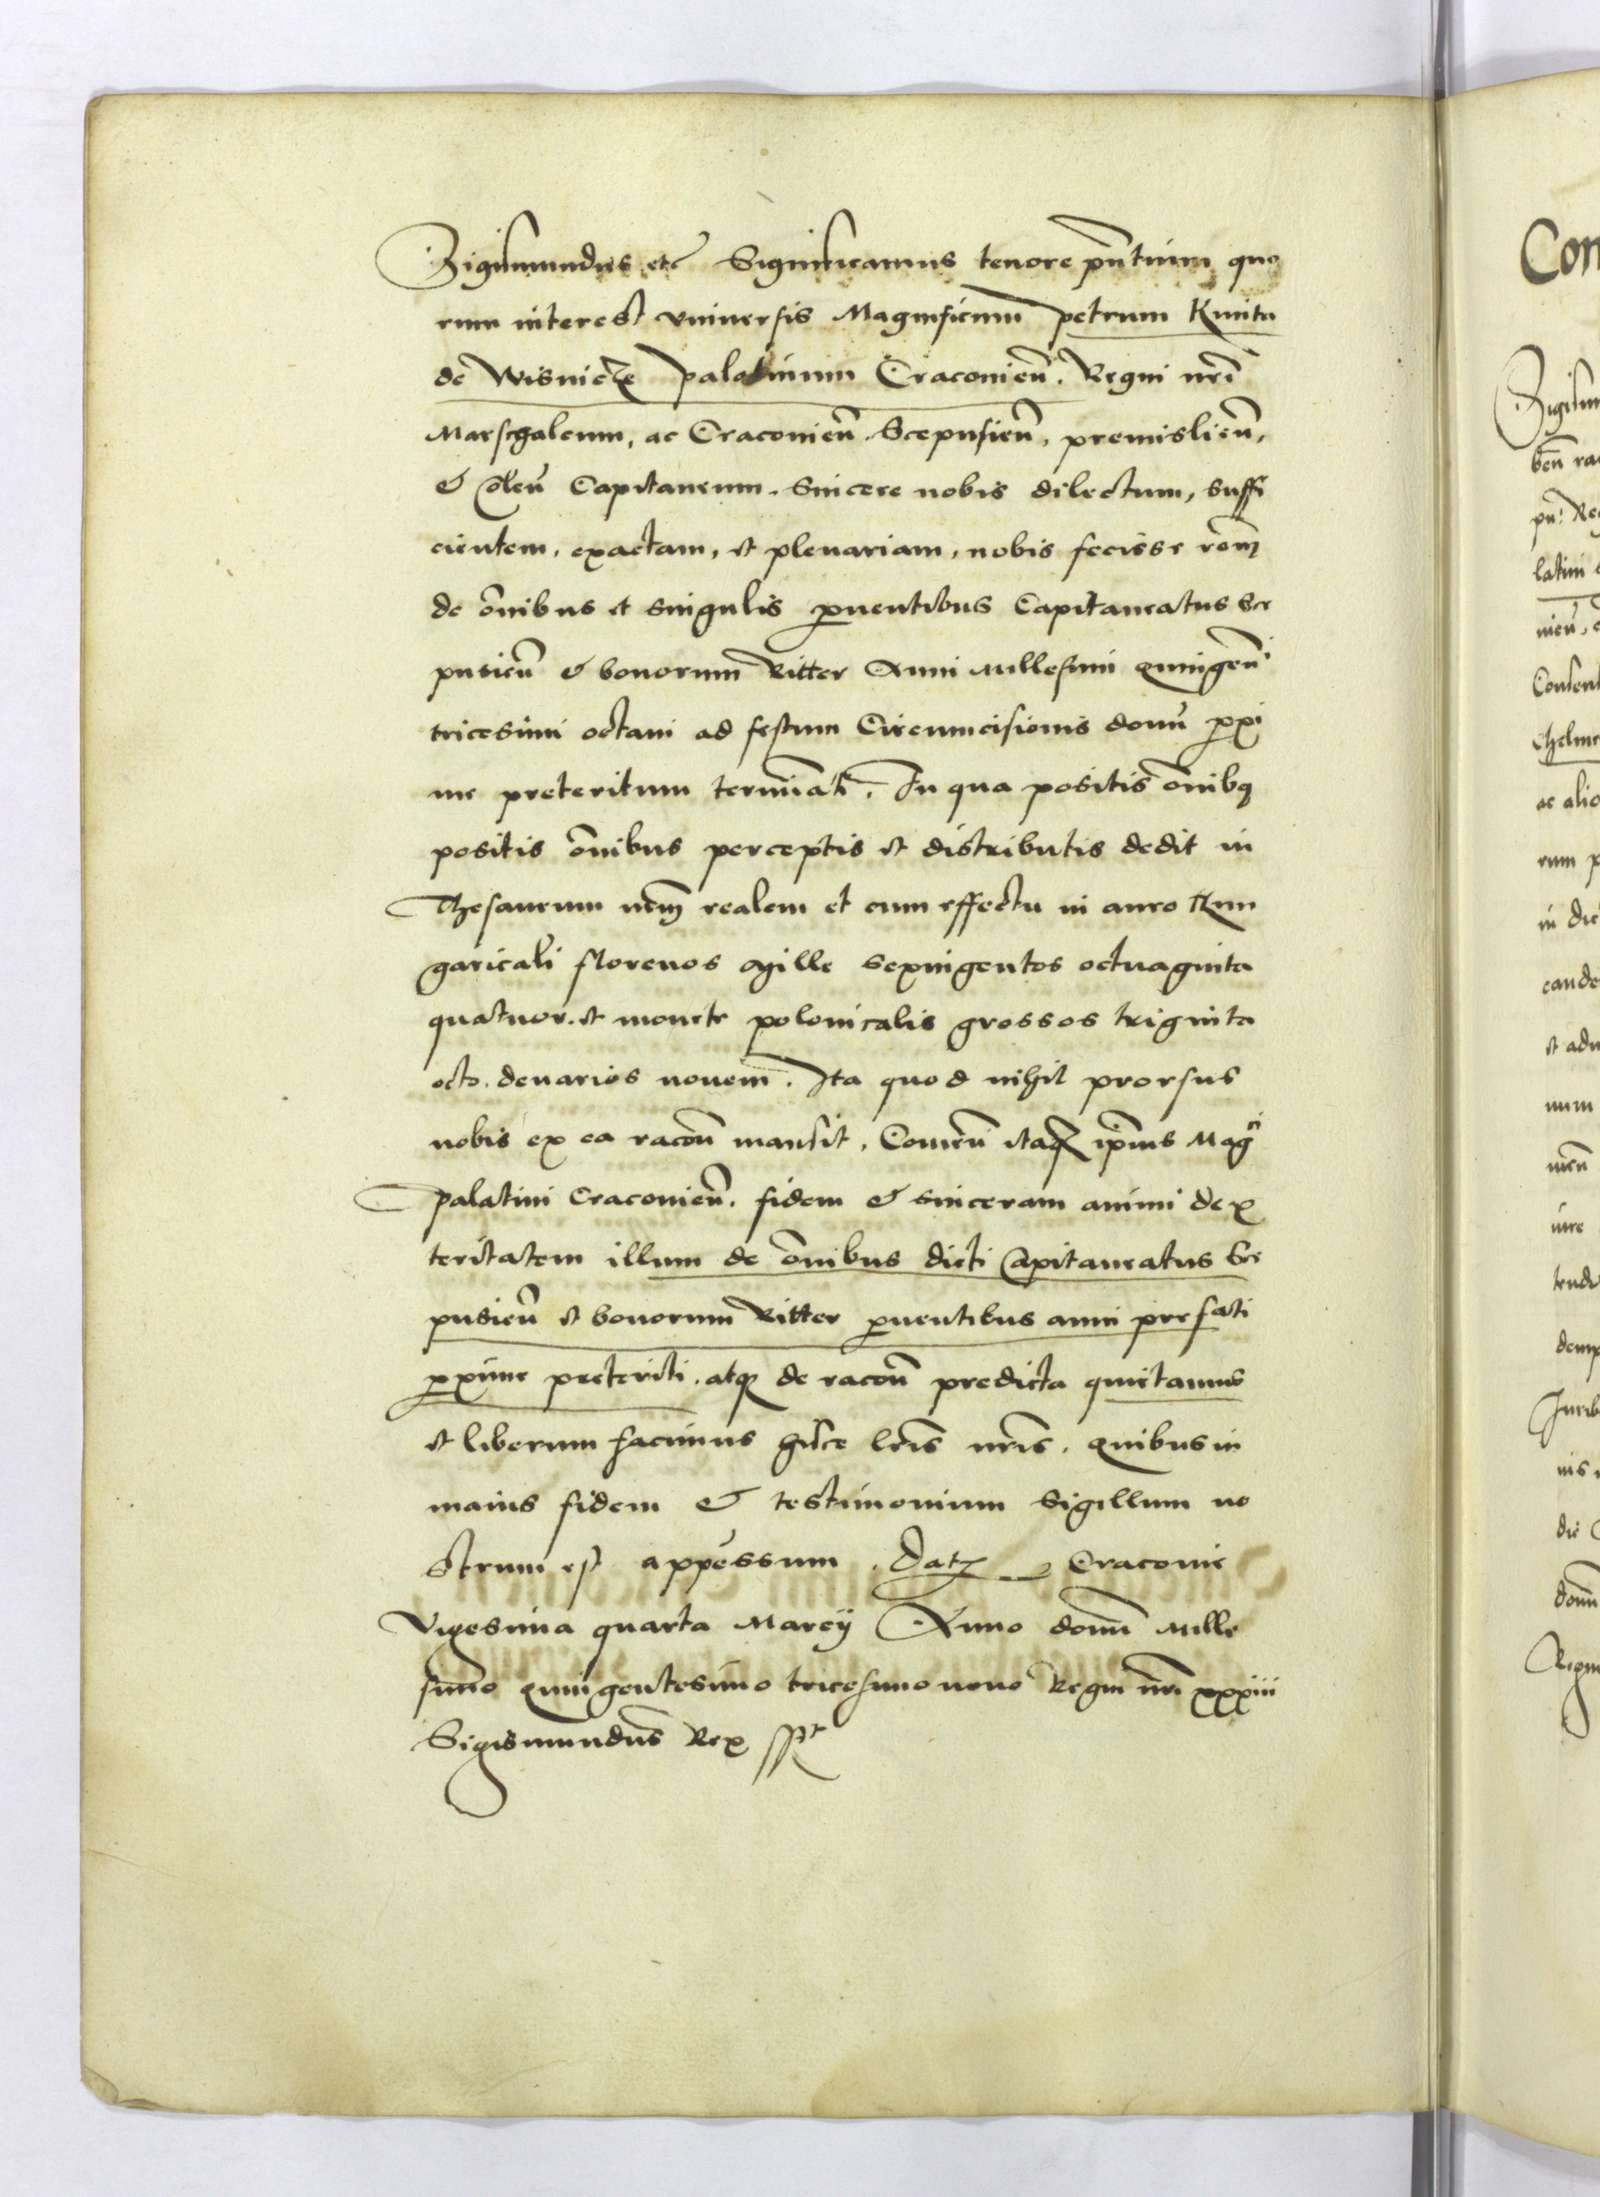 Sigismundus etc Significamus tenore pñtium quo
rum interest vniuersis Magnificum petrum Kmita
de Wisnicze palatinum Cracovieñ. Regni nrĩ
Marschalcum, ac Cracovieñ Scepusieñ, premislieñ,
& Coleñ Capitaneum. Sincere nobis dilectum, suffi
cientem, exactam, et plenariam, nobis fecisse rõem
de õnibus et singulis puentibus Capitaneatus Sce
pusieñ & bonorum Ritter Anni millesimi quingeñ
tricesimi octavi ad festum Circumcisionis domĩ pxi
me preteritum terminati. In qua positis õnibq
positis õnibus perceptis et distributis dedit in
Thesaurum nrm̃ realem et cum effectu in auro Hun
garicali florenos Mille sexingentos octuaginta
quatuor. et monete polonicalis grossos triginta
octo. denarios novem. Ita quod nihil prorsus
nobis ex ea racoñ mansit. Comeñ itaqz ipĩus Magci
palatini Cracovieñ. fidem & sinceram animi dex
teritatem illum de õnibus dicti Capitaneatus Sce
pusieñ et bonorum Ritter puentibus anni prefati
pxime preteriti. atqz de racoñ predicta quietamus
et liberum facimus hisce lrĩs nrĩs. quibus in
maius fidem & testimonium Sigillum no
strum est appessum. Datz Cracovie
Vigesima quarta Marcij Anno domĩ Mille
simo quingentesimo tricesimo nono Regni nrĩ xxxiii
Sigismundus Rex sspt
Con
Sigismu
latini
nieñ,
Consen
Chelme
ac alio
rum p
in dic
cande
et adu
num
iure
Regni